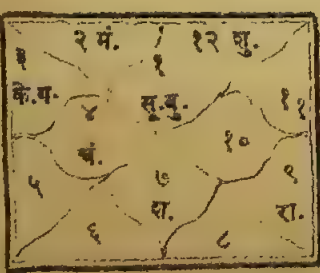 २ मं. १ १२ शु.
३
के.प. ४ सू.बु. ११
चं. १०
५ ७ ९
श. रा.
६ ८